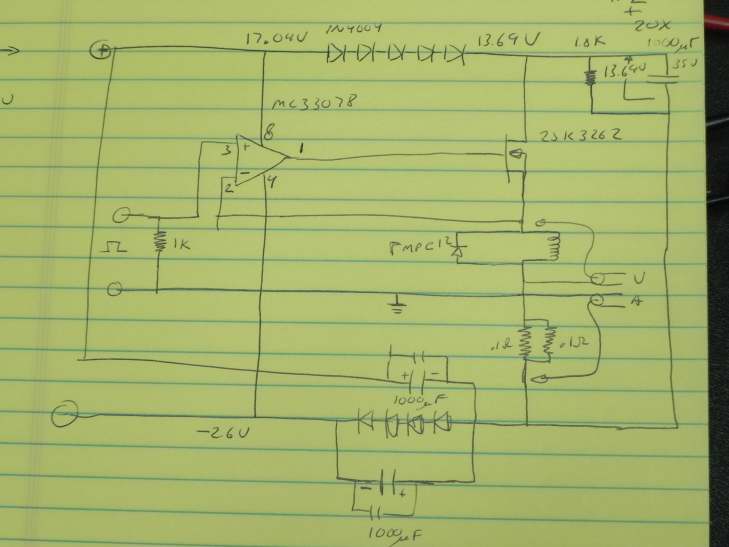 +
20X
1N4004
17.04V
13.69V
1.8K
1000µF
13.69V
35V
MC33078
8
3
+
1
2SK3262
-
2
4
1K
V
A
.1Ω
.1Ω
+
-
1000µF
-2.6V
-
+
1000µF